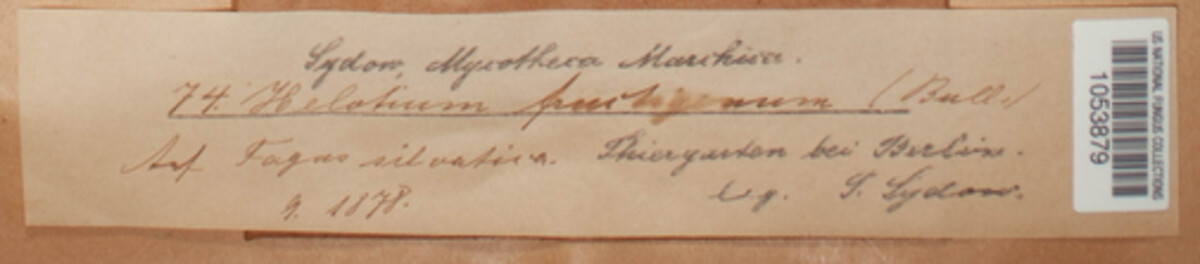 Sydow, Mycotheca Marchica.
74. Helotium fructigenum (Bull.)
Auf Fagus silvatica. Thiergarten bei Berlin.
9. 1878. leg. P. Sydow.
US NATIONAL FUNGUS COLLECTIONS
1053879